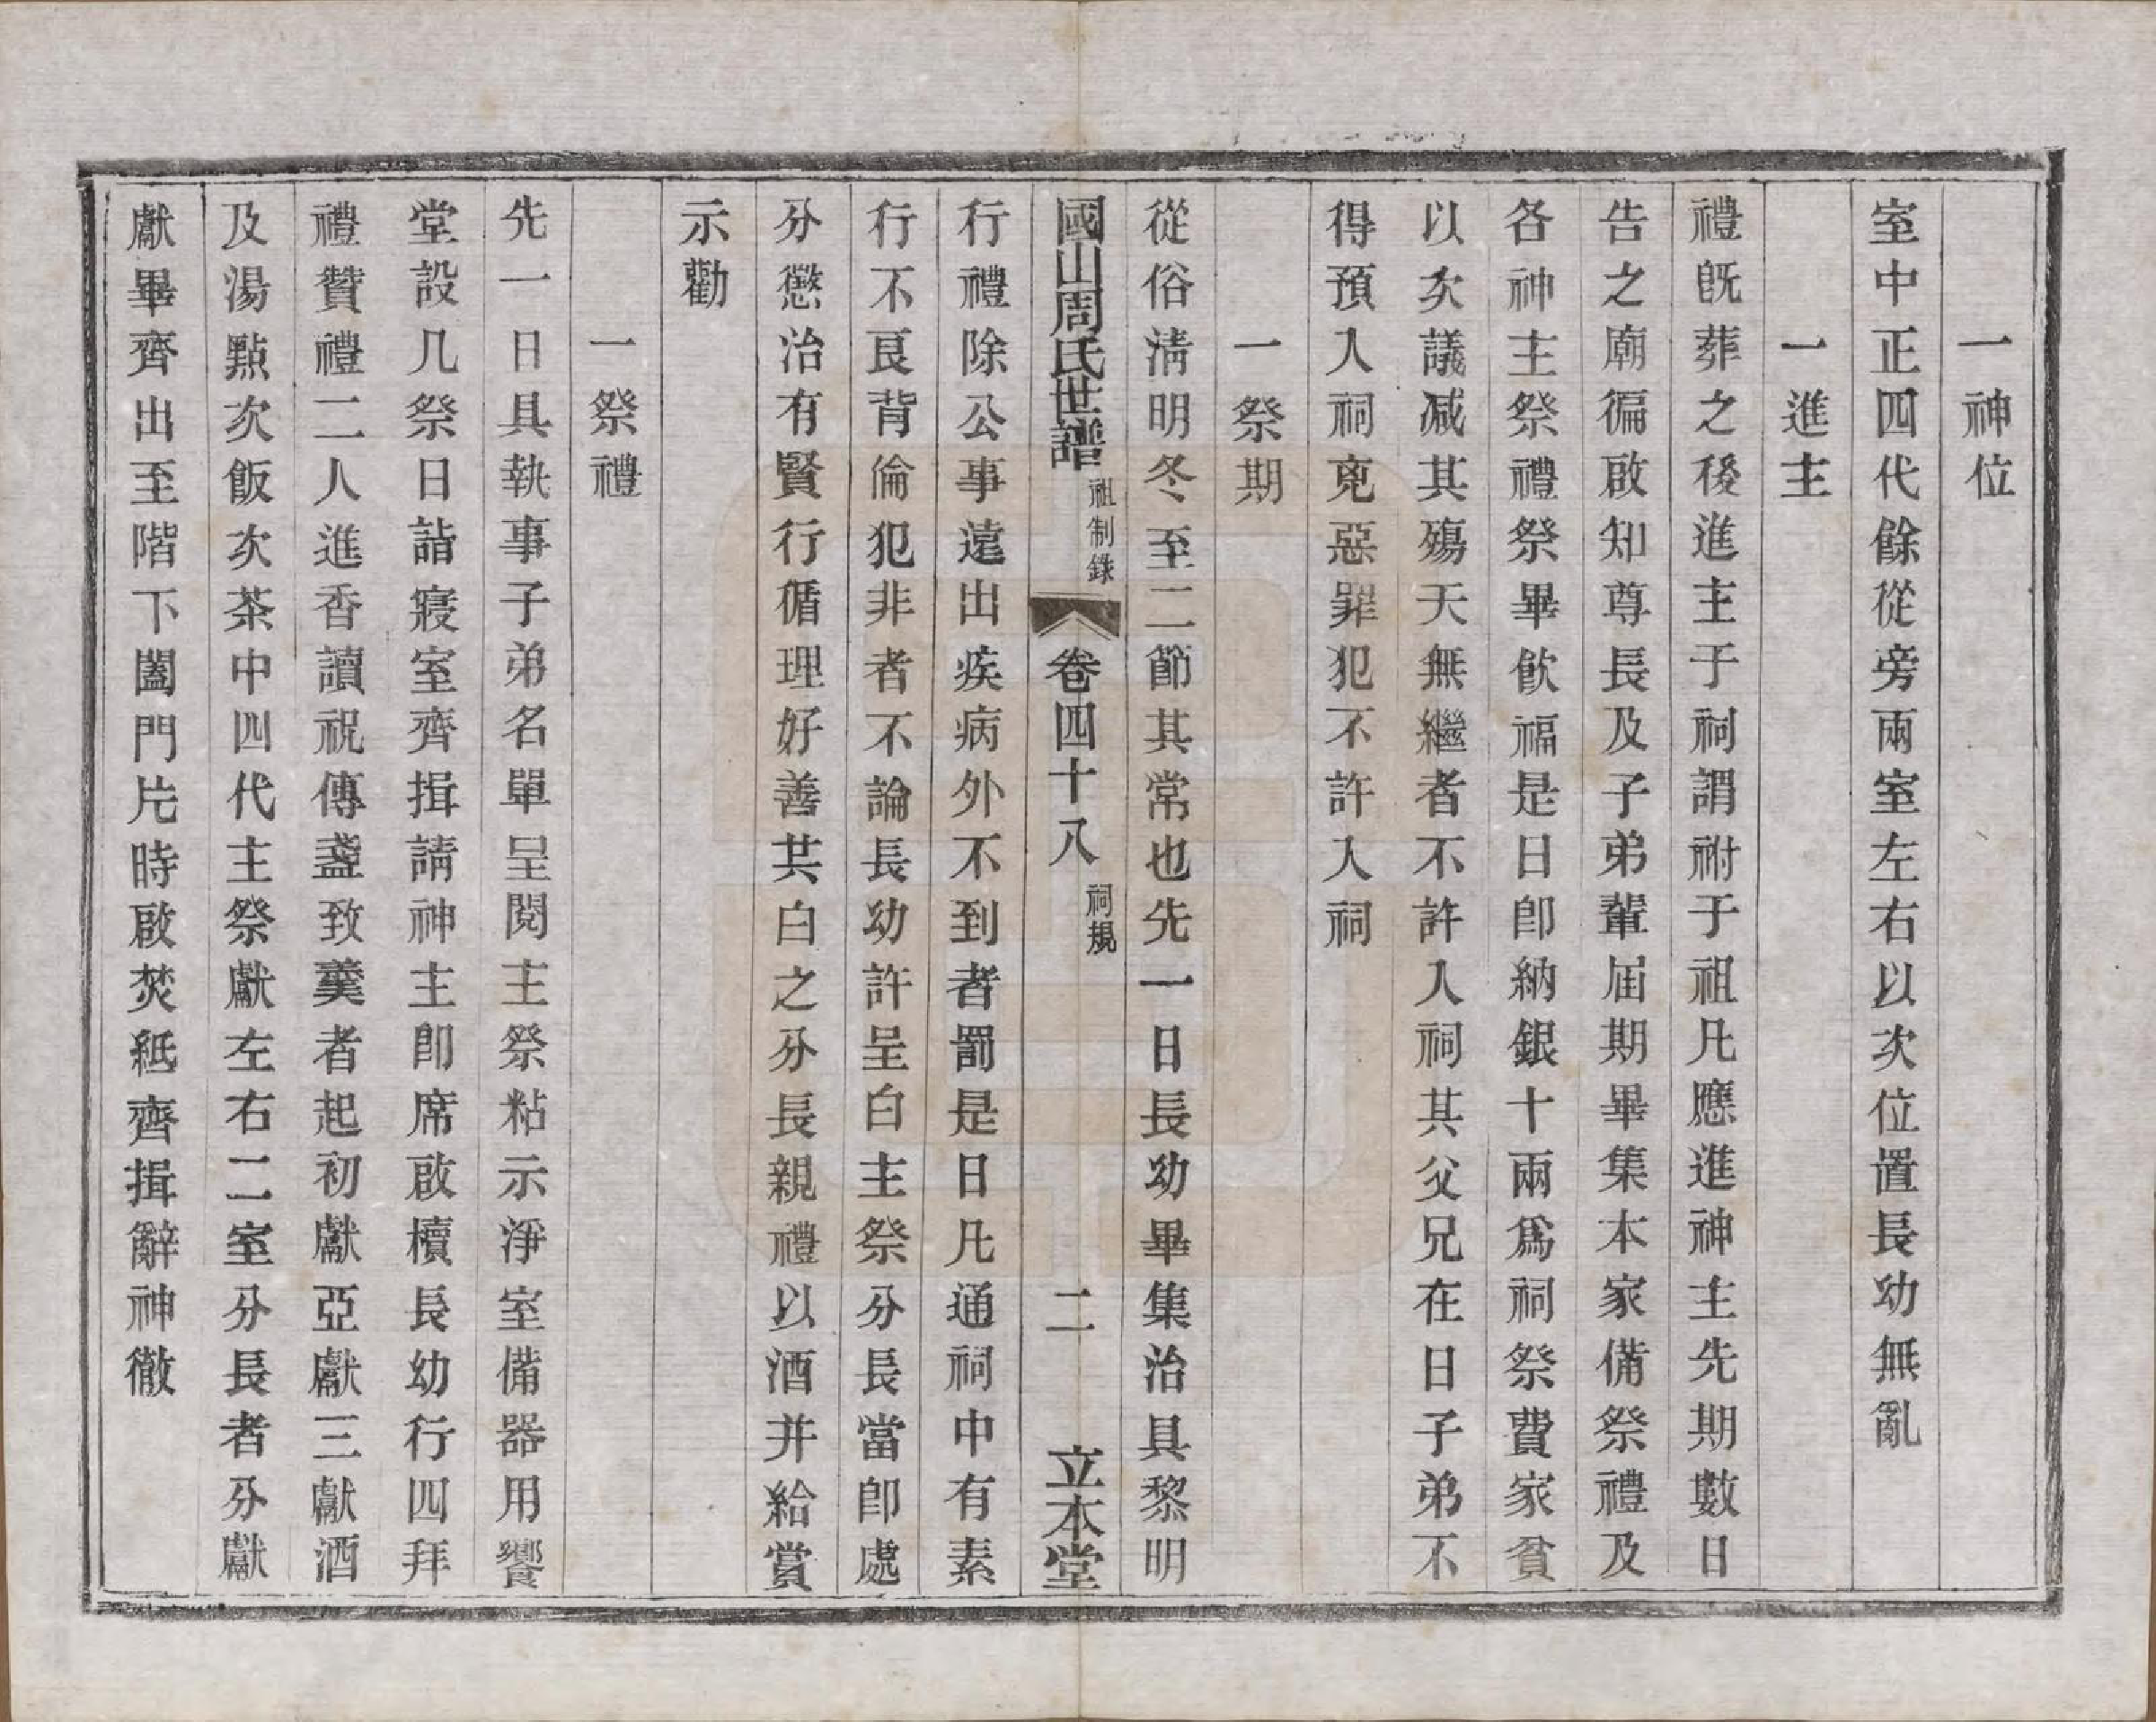 一神位
室中正四代餘從旁兩室左右以次位置長幼無亂
一進主
禮既葬之後進主于祠謂祔于祖凡應進神主先期數日
告之廟徧啟知尊長及子弟輩屆期畢集本家備祭禮及
各神主祭禮祭畢飲福是日卽納銀十兩爲祠祭費家貧
以次議減其殤夭無繼者不許入祠其父兄在日子弟不
得預入祠兇惡罪犯不許入祠
一祭期
從俗淸明冬至二節其常也先一日長幼畢集治具黎明
國山周氏世譜 祖制錄 卷四十八 祠規 二 立本堂
行禮除公事遠出疾病外不到者罰是日凡通祠中有素
行不良背倫犯非者不論長幼許呈白主祭分長當卽處
分懲治有賢行循理好善共白之分長親禮以酒幷給賞
示勸
一祭禮
先一日具執事子弟名單呈閱主祭粘示淨室備器用饗
堂設几祭日詣寢室齊揖請神主卽席啟櫝長幼行四拜
禮贊禮二人進香讀祝傳盞致羹者起初獻亞獻三獻酒
及湯點次飯次茶中四代主祭獻左右二室分長者分獻
獻畢齊出至階下闔門片時啟焚紙齊揖辭神徹